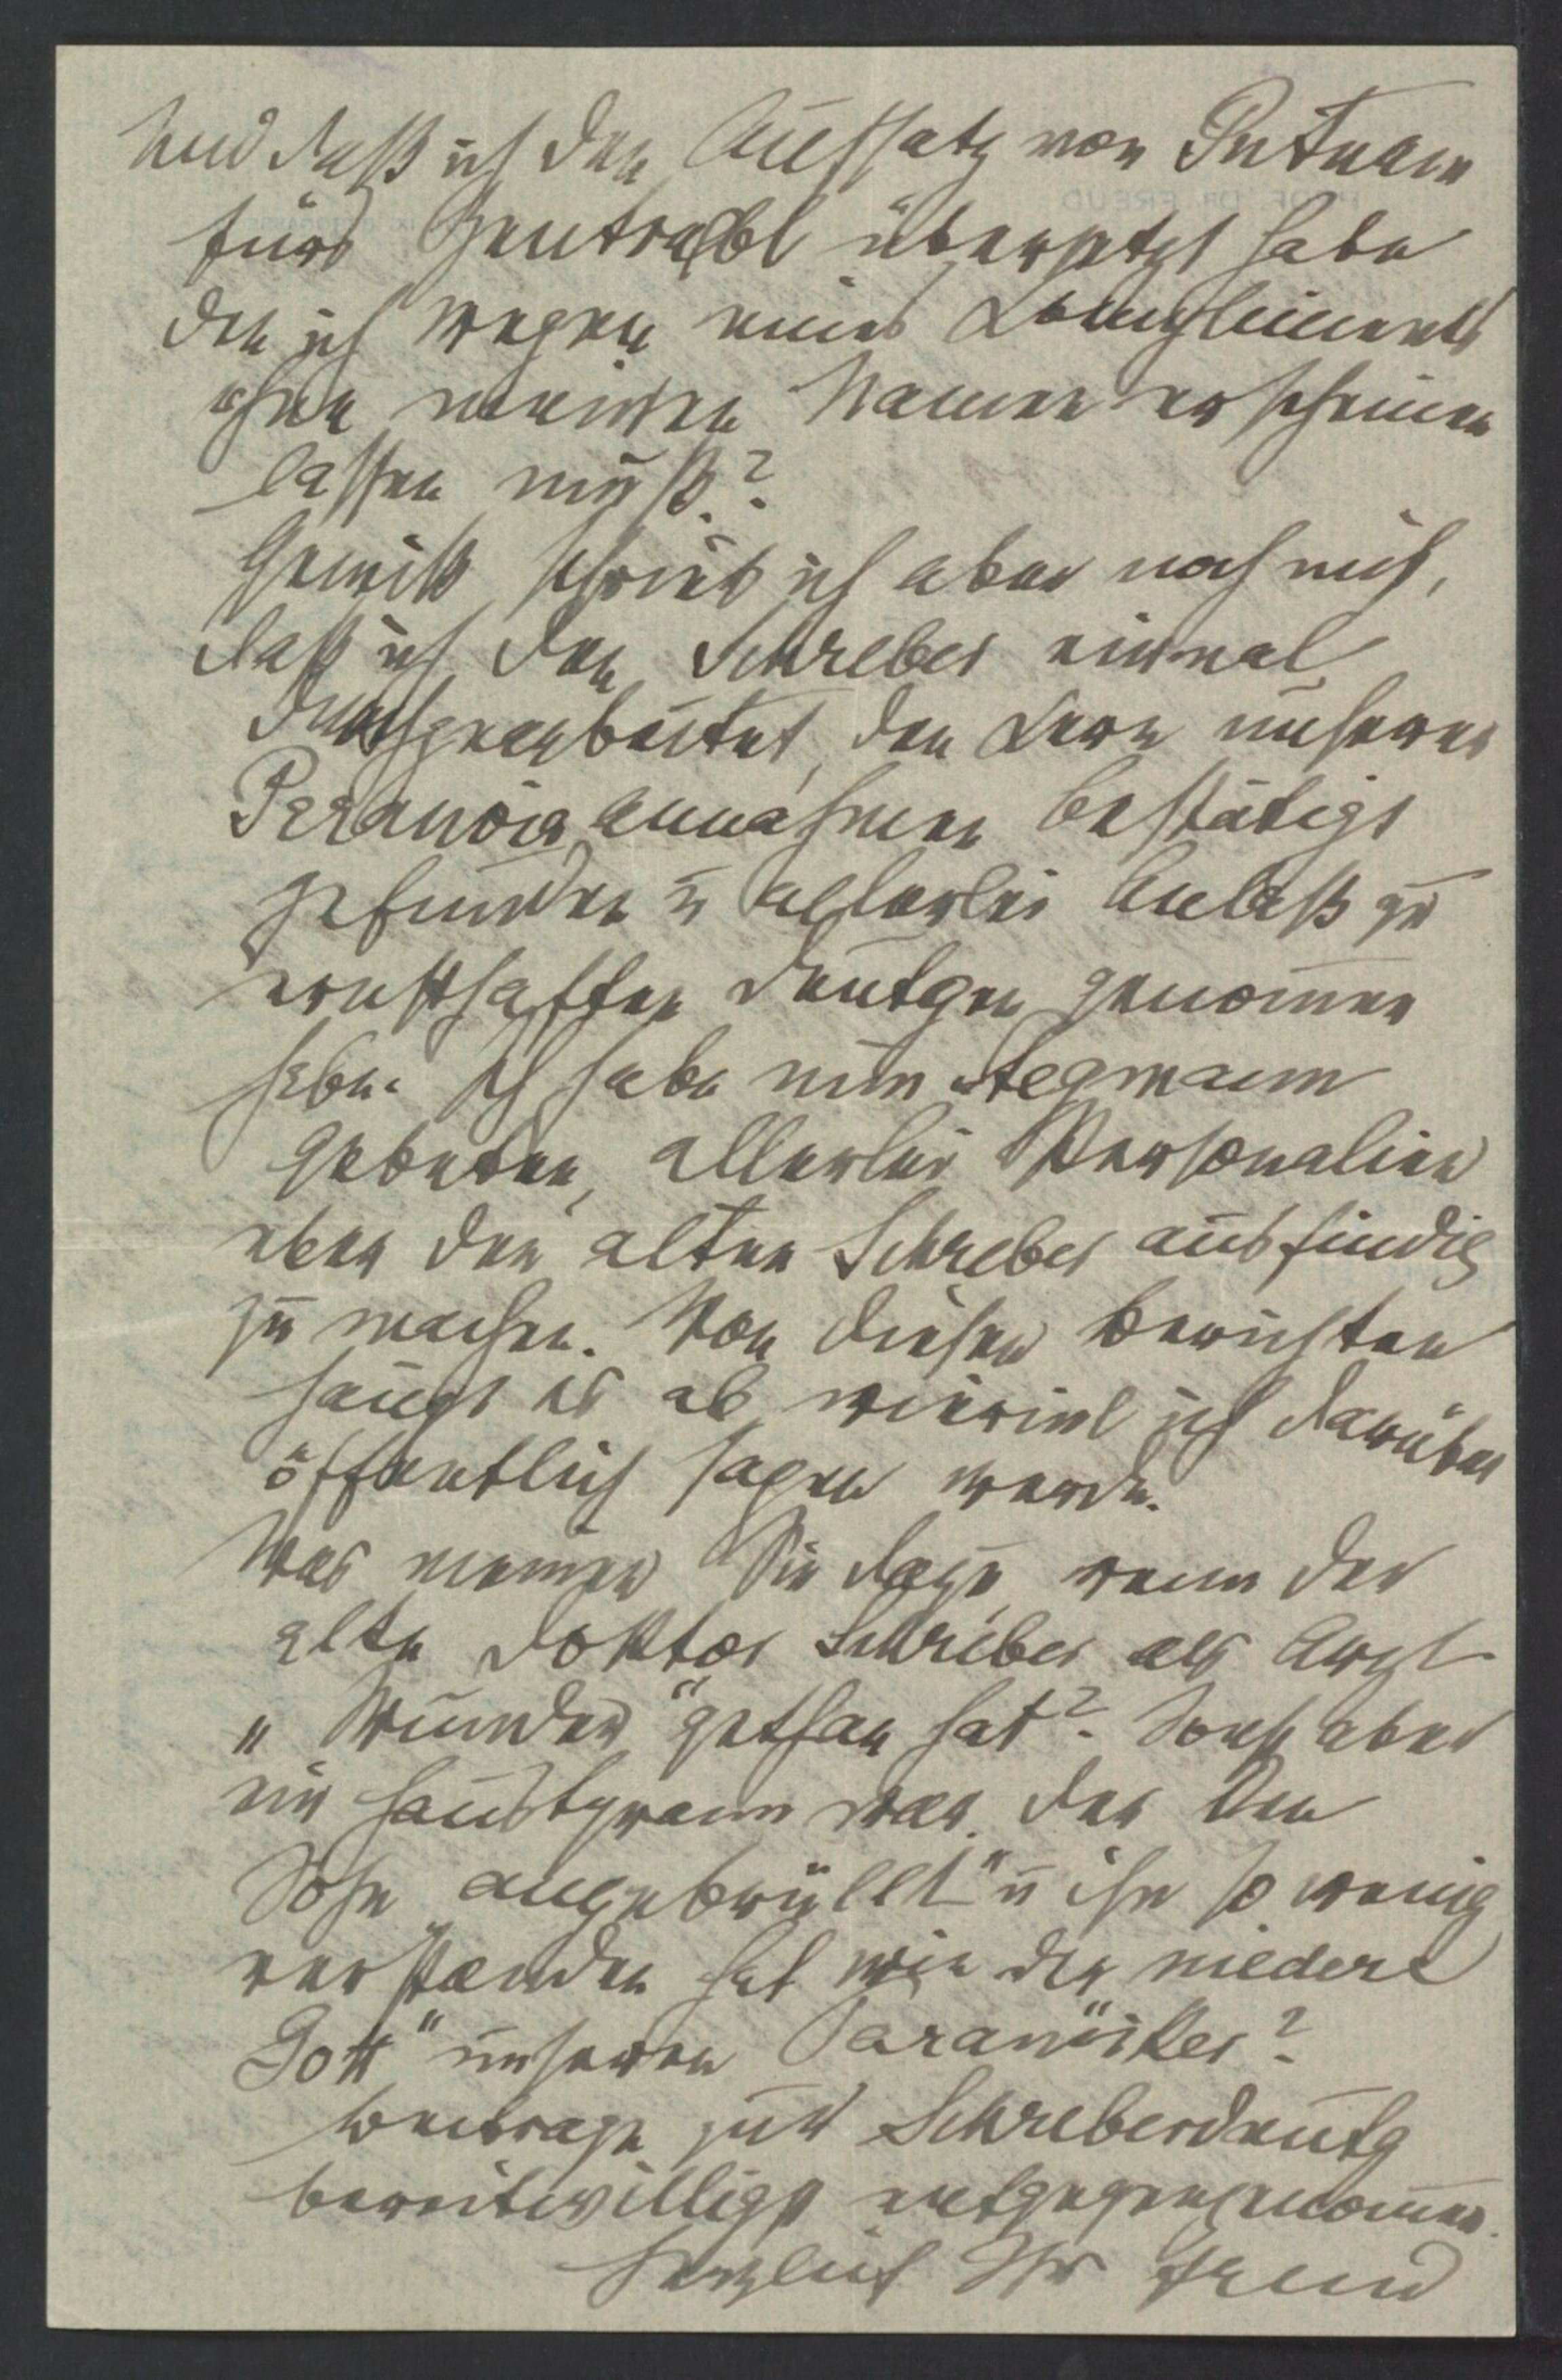 Und daß ich den Aufsatz von Putnam
fürs Zentralbl übersetzt habe
den ich wegen eines Kompliments
ohne meinen Namen erscheinen
lassen muß?
Gewiß schrieb ich aber noch nicht,
daß ich den Schreber einmal
durchgearbeitet, den Kern unserer
Paranoiaannahmen bestätigt
gefunden u allerlei Anlaß zu
ernsthaften Deutgen genommen
habe. Ich habe nun Stegmann
gebeten, allerlei Personalien
über den alten Schreber ausfindig
zu machen. Von diesen Berichten
hängt es ab, wieviel ich darüber
öffentlich sagen werde.
Was meinen Sie dazu, wenn der
alte Doktor Schreber als Arzt
„Wunder" gethan hat? Sonst aber
ein Haustyrann war, der den
Sohn angebrüllt" u ihn so wenig
verstanden hat wie der niedere
Gott" unseren Paranoiker?
Beitrage zur Schreberdeutg
bereitwilligst entgegengenommen.
Herzlich Ihr Freud